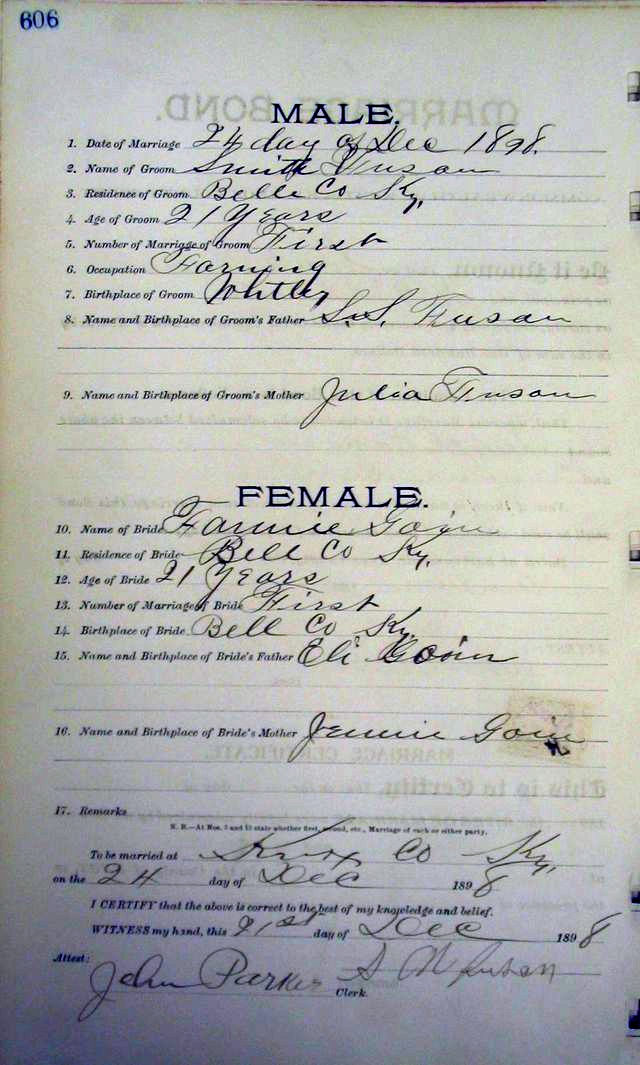 606
MALE.
1. Date of Marriage 24 day of Dec 1898.
2. Name of Groom Smith Fuson
3. Residence of Groom Belle Co Ky,
4. Age of Groom 21 Years
5. Number of Marriage of Groom First
6. Occupation Farming
7. Birthplace of Groom Whitley
8. Name and Birthplace of Groom's Father S. S. Fuson
9. Name and Birthplace of Groom's Mother Julia Fuson
FEMALE.
10. Name of Bride Fannie Goin
11. Residence of Bride Bell Co Ky,
12. Age of Bride 21 Years
13. Number of Marriage of Bride First
14. Birthplace of Bride Bell Co Ky
15. Name and Birthplace of Bride's Father Eli Goin
16. Name and Birthplace of Bride's Mother Jennie Goin
17. Remarks
N. B.—At Nos. 5 and 13 state whether first, second, etc., Marriage of each or either party.
To be married at Knox Co Ky,
on the 24 day of Dec 1898
I CERTIFY that the above is correct to the best of my knowledge and belief.
WITNESS my hand, this 21st day of Dec 1898
Attest:
John Parker Clerk. Fuson